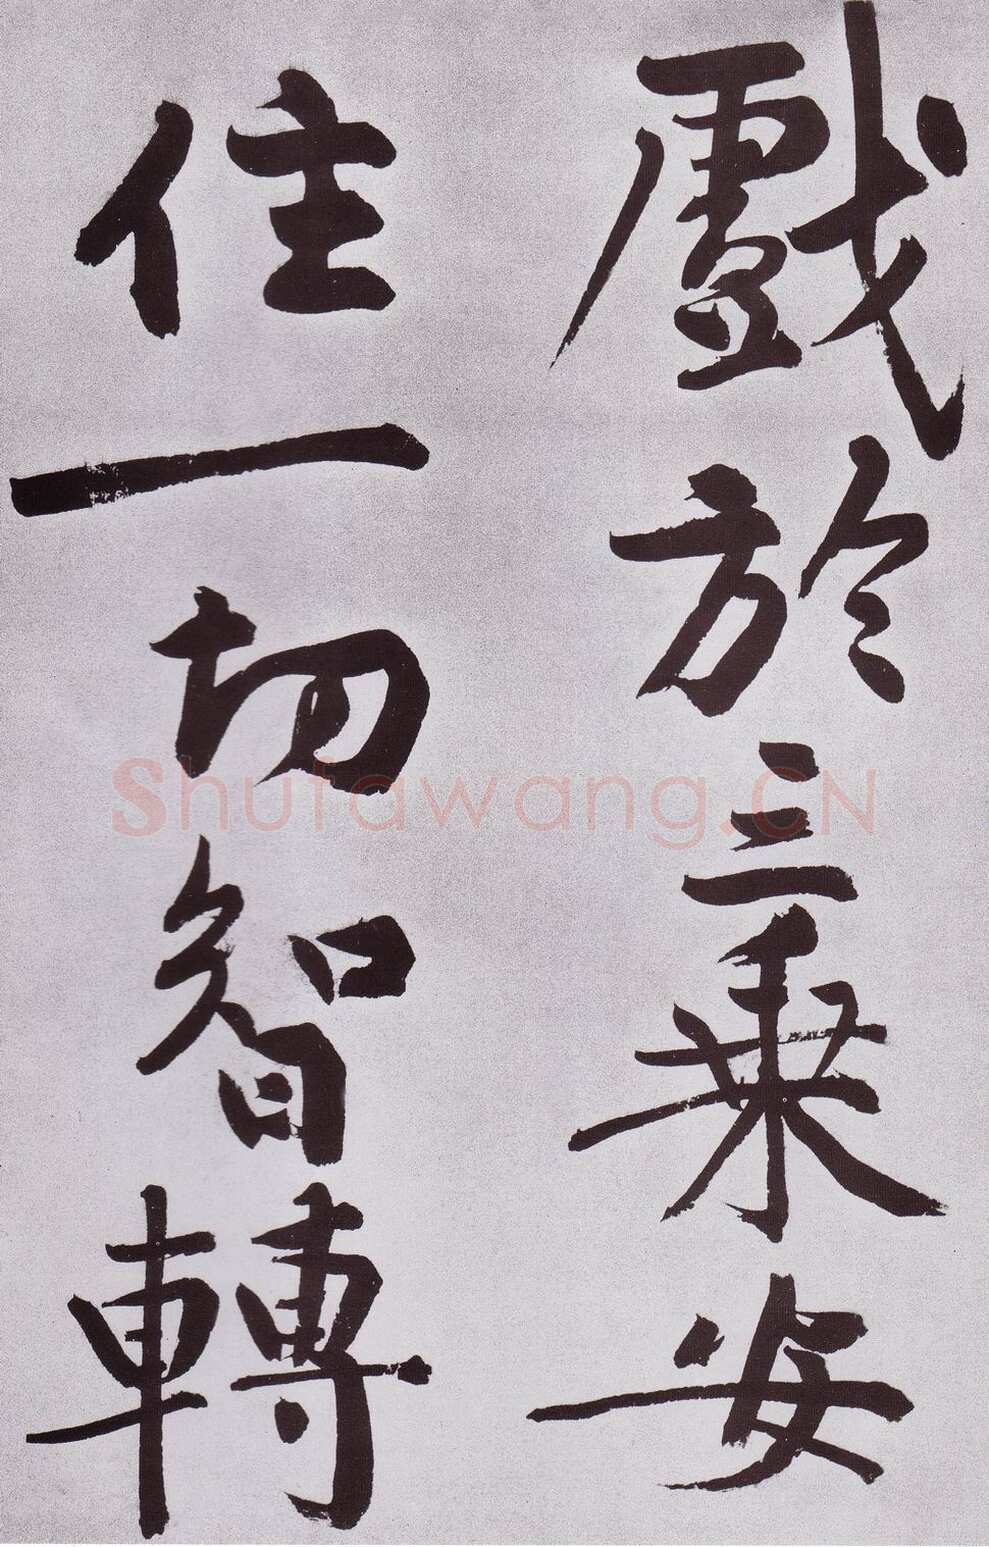 戲於三乗安
住一切智轉
Shufawang.CN